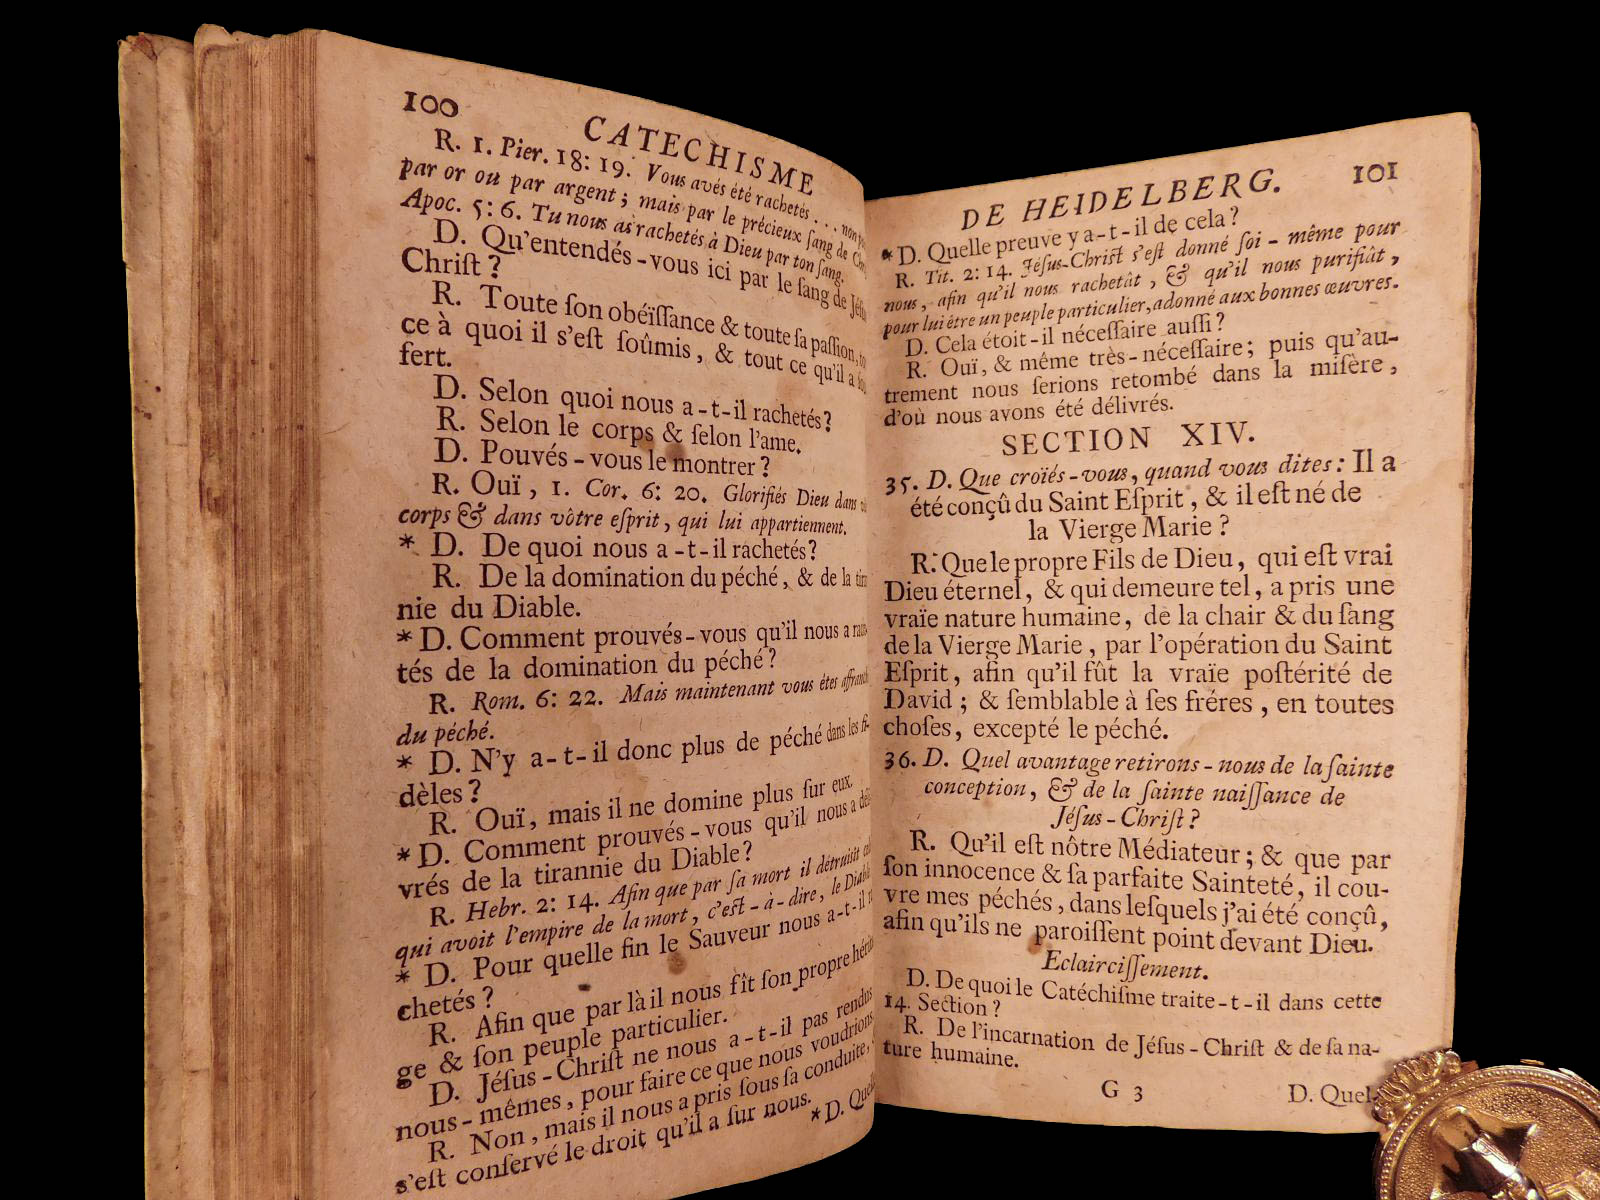 100 CATECHISME
R. 1. Pier. 18: 19. Vous avés été rachetés . . . non
par or ou par argent ; mais par le précieux ſang de
Apoc. 5: 6. Tu nous as rachetés à Dieu par ton ſang.
D. Qu'entendés-vous ici par le ſang de
Chriſt ?
R. Toute ſon obéïſſance & toute ſa paſſion,
ce à quoi il s'eſt ſoûmis, & tout ce qu'il a
fert.
D. Selon quoi nous a-t-il rachetés ?
R. Selon le corps & ſelon l'ame.
D. Pouvés-vous le montrer ?
R. Ouï, 1. Cor. 6: 20. Glorifiés Dieu dans
corps & dans vôtre eſprit, qui lui appartiennent.
* D. De quoi nous a-t-il rachetés ?
R. De la domination du péché, & de la
nie du Diable.
* D. Comment prouvés-vous qu'il nous a
tés de la domination du péché ?
R. Rom. 6: 22. Mais maintenant vous étes
du péché.
* D. N'y a-t-il donc plus de péché dans les fi-
dèles ?
R. Ouï, mais il ne domine plus ſur eux.
* D. Comment prouvés-vous qu'il nous a
vrés de la tirannie du Diable ?
R. Hebr. 2: 14. Afin que par ſa mort il détruisît
qui avoit l'empire de la mort, c'eſt-à-dire, le Diable
* D. Pour quelle fin le Sauveur nous a-t-il
chetés ?
R. Afin que par là il nous fît ſon propre
ge & ſon peuple particulier.
D. Jéſus-Chriſt ne nous a-t-il pas rendus
nous-mêmes, pour faire ce que nous voudrions
R. Non, mais il nous a pris ſous ſa conduite,
s'eſt conſervé le droit qu'il a ſur nous.
* D.
DE HEIDELBERG. 101
* D. Quelle preuve y a-t-il de cela ?
R. Tit. 2: 14. Jéſus-Chriſt s'eſt donné ſoi-même pour
nous, afin qu'il nous rachetât, & qu'il nous purifiât,
pour lui être un peuple particulier, adonné aux bonnes œuvres.
D. Cela étoit-il néceſſaire auſſi ?
R. Ouï, & même très-néceſſaire; puis qu'au-
trement nous ſerions retombé dans la miſère,
d'où nous avons été délivrés.
SECTION XIV.
35. D. Que croïés-vous, quand vous dites : Il a
été conçû du Saint Eſprit, & il eſt né de
la Vierge Marie ?
R. Que le propre Fils de Dieu, qui eſt vrai
Dieu éternel, & qui demeure tel, a pris une
vraïe nature humaine, de la chair & du ſang
de la Vierge Marie, par l'opération du Saint
Eſprit, afin qu'il fût la vraïe poſtérité de
David ; & ſemblable à ſes fréres, en toutes
choſes, excepté le péché.
36. D. Quel avantage retirons-nous de la ſainte
conception, & de la ſainte naiſſance de
Jéſus-Chriſt ?
R. Qu'il eſt nôtre Médiateur ; & que par
ſon innocence & ſa parfaite Sainteté, il cou-
vre mes péchés, dans leſquels j'ai été conçû,
afin qu'ils ne paroiſſent point devant Dieu.
Eclairciſſement.
D. De quoi le Catéchiſme traite-t-il dans cette
14. Section ?
R. De l'incarnation de Jéſus-Chriſt & de ſa na-
ture humaine.
G 3 D. Quel-